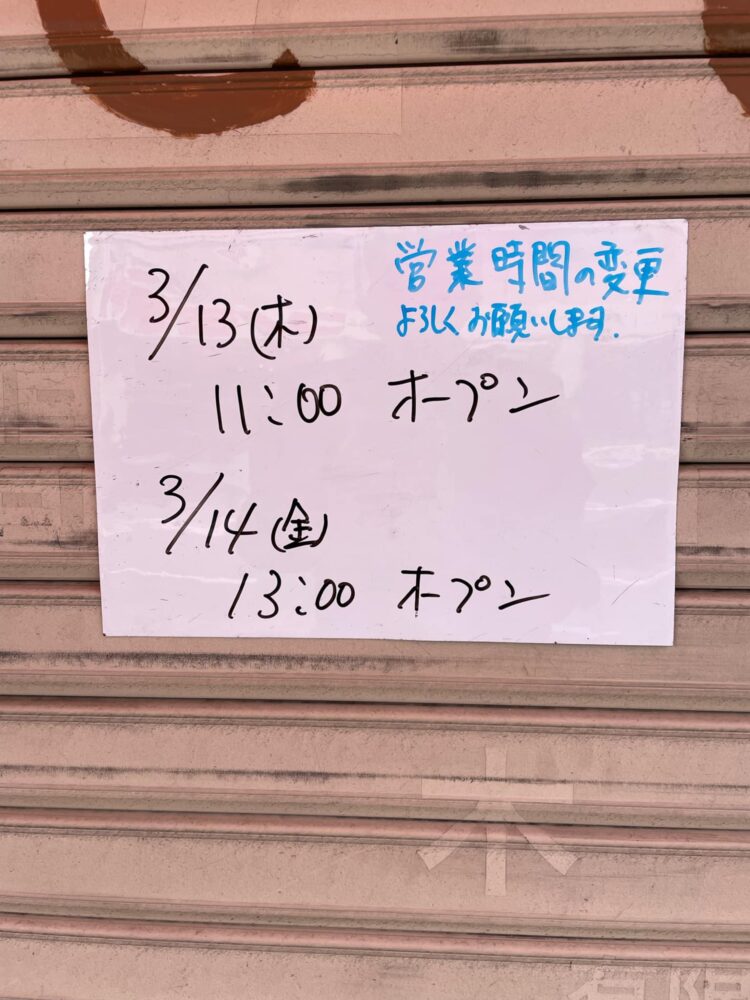 営業時間の変更
よろしくお願いします.
3/13(木)
11:00 オープン
3/14(金)
13:00 オープン
木
有限